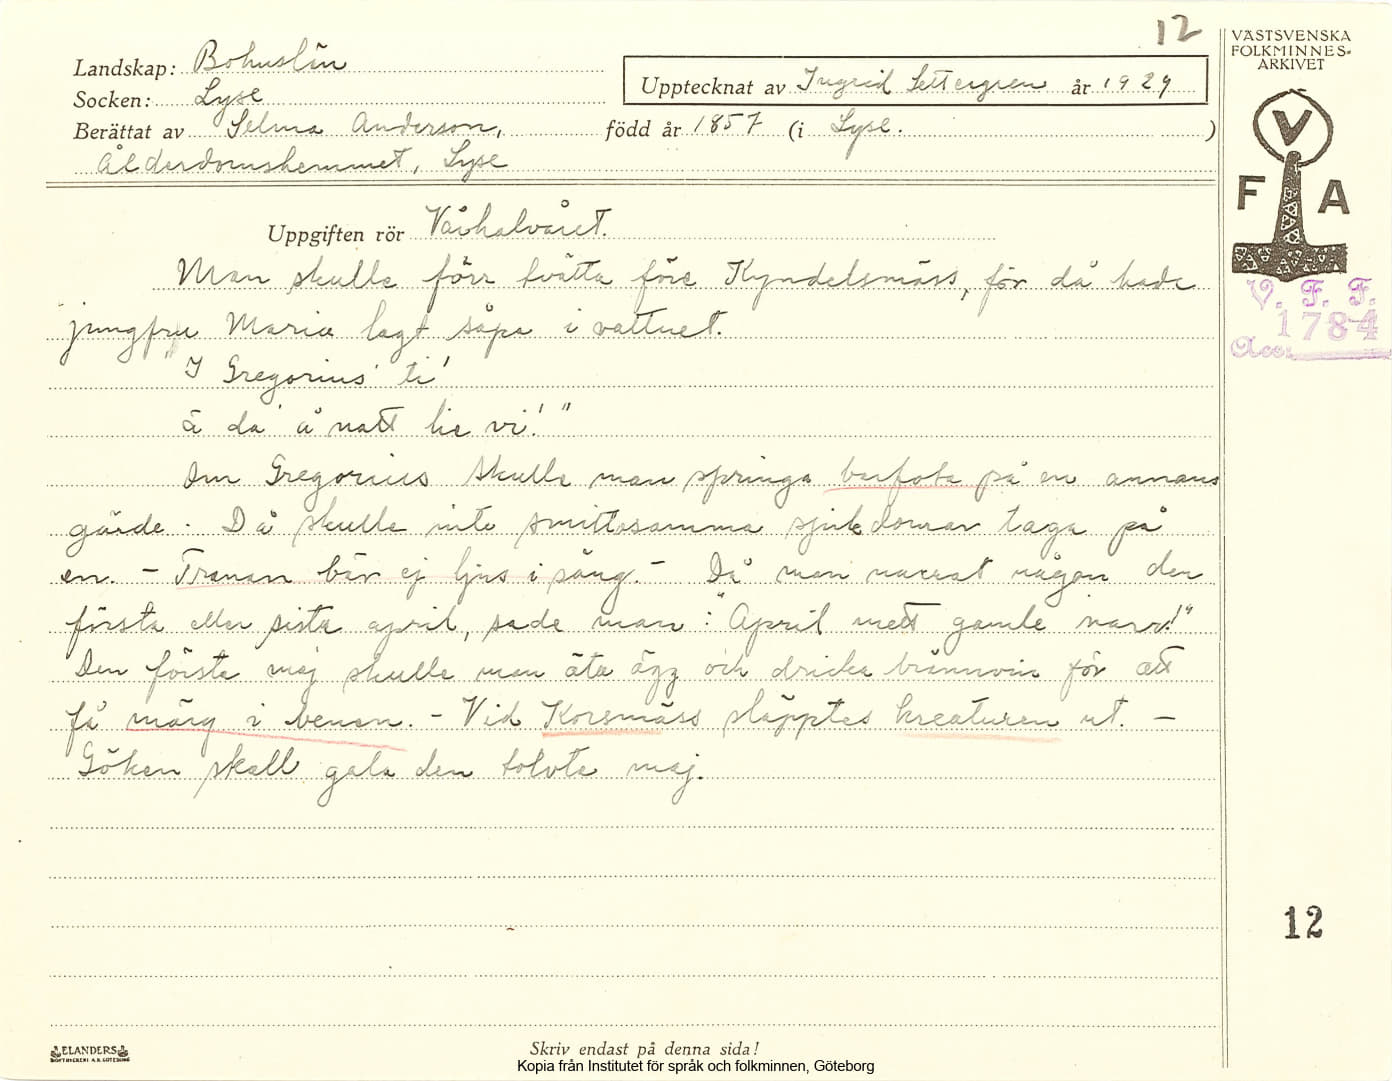 12
Landskap: Bohuslän
Socken: Lyse
Upptecknat av Ingrid Settergren år 1929
Berättat av Selma Anderson, född år 1857 (i Lyse. )
Ålderdomshemmet, Lyse
VÄSTSVENSKA
FOLKMINNES-
ARKIVET
V
F A
V. F. F.
1784
Acc:
Uppgiften rör Vårhalvåret.
Man skulle förr tvätta före Kyndelsmäss, för då hade
jungfru Maria lagt såpa i vattnet.
"I Gregorius' ti'
ä da' å natt lie vi'!"
Om Gregorius skulle man springa barfota på en annans
gärde. Då skulle inte smittosamma sjukdomar taga på
en. - Tranan bär ej ljus i säng. - Då man narrat någon den
första eller sista april, sade man: "April mett gamle narr!"
Den första maj skulle man äta ägg och dricka brännvin för att
få märg i benen. - Vid Korsmäss släpptes kreaturen ut. -
Göken skall gala den tolvte maj.
12
ELANDERS
BOKTRYCKERI A.B. GÖTEBORG
Skriv endast på denna sida!
Kopia från Institutet för språk och folkminnen, Göteborg